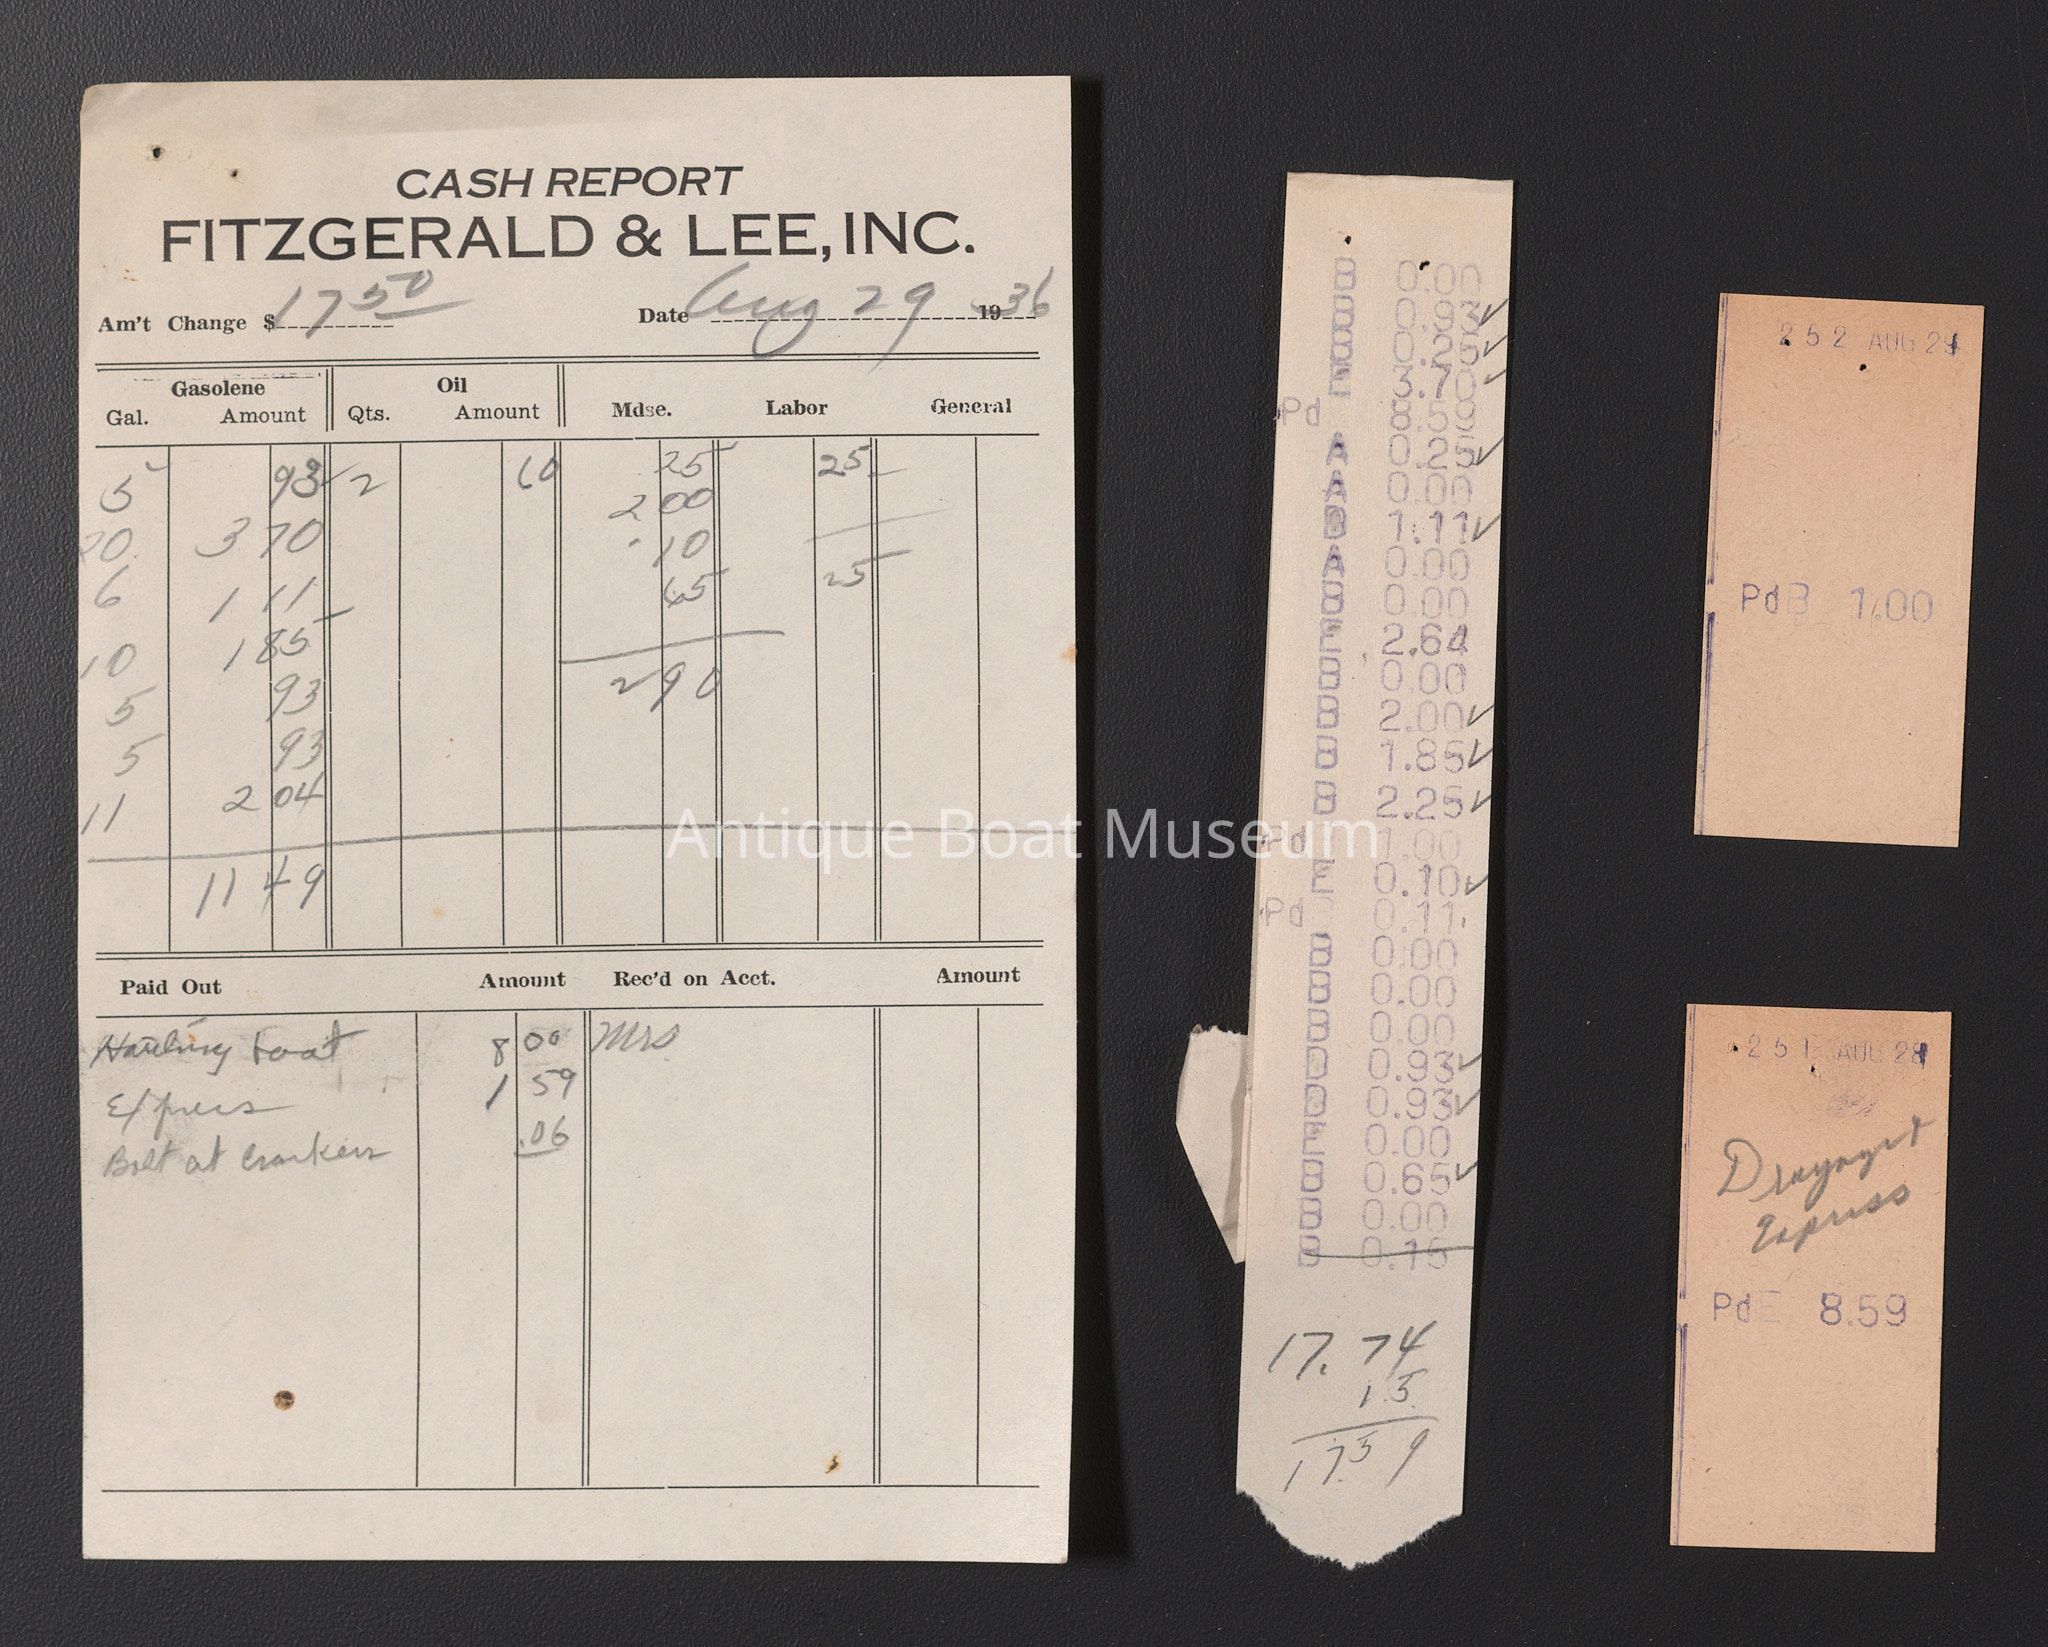 CASH REPORT
FITZGERALD & LEE, INC.
Am't Change $ 17 50 Date Aug 29 1936
Gasolene Oil
Gal. Amount Qts. Amount Mdse. Labor General
5 93 2 60 25 25
20 3 70 2 00
6 1 11 .10 25
10 1 85 65
5 93 2 90
5 93
11 2 04
11 49
Paid Out Amount Rec'd on Acct. Amount
Hauling boat 8 00 Mrs
Express 1 59
Bolt at .06
B 0.00
B 0.93
B 0.25
E 3.70
Pd 8.59
A 0.25
A 0.00
D 1.11
A 0.00
B 0.00
E 2.64
B 0.00
B 2.00
B 1.85
B 2.25
Pd 1.00
E 0.10
Pd 0.11
B 0.00
B 0.00
B 0.00
D 0.93
D 0.93
E 0.00
B 0.65
B 0.00
B 0.15
17.74
15
17.59
252 AUG 29
PdB 1.00
251 AUG 29
Express
PdE 8.59
Antique Boat Museum